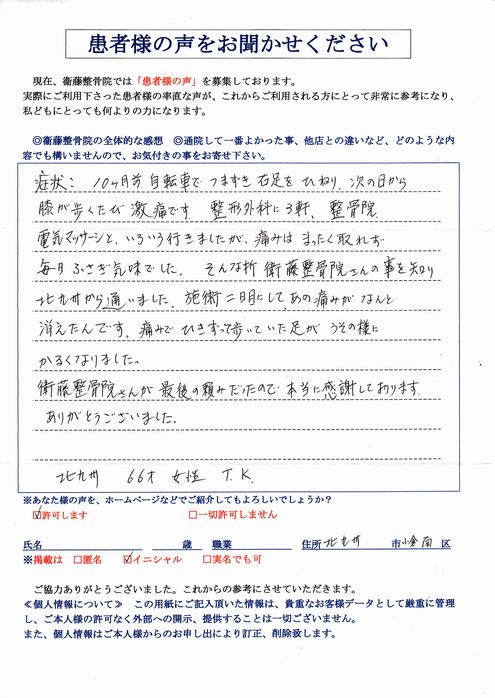 患者様の声をお聞かせください
現在、衞藤整骨院では「患者様の声」を募集しております。
実際にご利用下さった患者様の率直な声が、これからご利用される方にとって非常に参考になり、
私どもにとっても何よりの力になります。
◎衞藤整骨院の全体的な感想　◎通院して一番よかった事、他店との違いなど、どのような内
容でも構いませんので、お気付きの事をお寄せ下さい。
症状： 10ヶ月前 自転車で つまずき 右足を ひねり、次の日から
膝が歩くたび 激痛です 整形外科に3軒、整骨院
電気マッサージと、いろいろ行きましたが、痛みは まったく取れず
毎日 ふさぎ気味でした。そんな折 衛藤整骨院さんの事を知り
北九州から通いました。施術二日目にして、あの痛みが なんと
消えたんです、痛みで ひきずって歩いていた足が うその様に
かるくなりました。
衛藤整骨院さんが 最後の頼みだったので 本当に感謝しております
ありがとうございました。
北九州 66才 女性 T.K.
※あなた様の声を、ホームページなどでご紹介してもよろしいでしょうか？
☑許可します　□一切許可しません
氏名　　　歳　職業　　　住所 北九州 市 小倉南 区
※掲載は　□匿名　☑イニシャル　□実名でも可
ご協力ありがとうございました。これからの参考にさせていただきます。
≪個人情報について≫　この用紙にご記入頂いた情報は、貴重なお客様データとして厳重に管理
し、ご本人様の許可なく外部への開示、提供することは一切ございません。
また、個人情報はご本人様からのお申し出により訂正、削除致します。